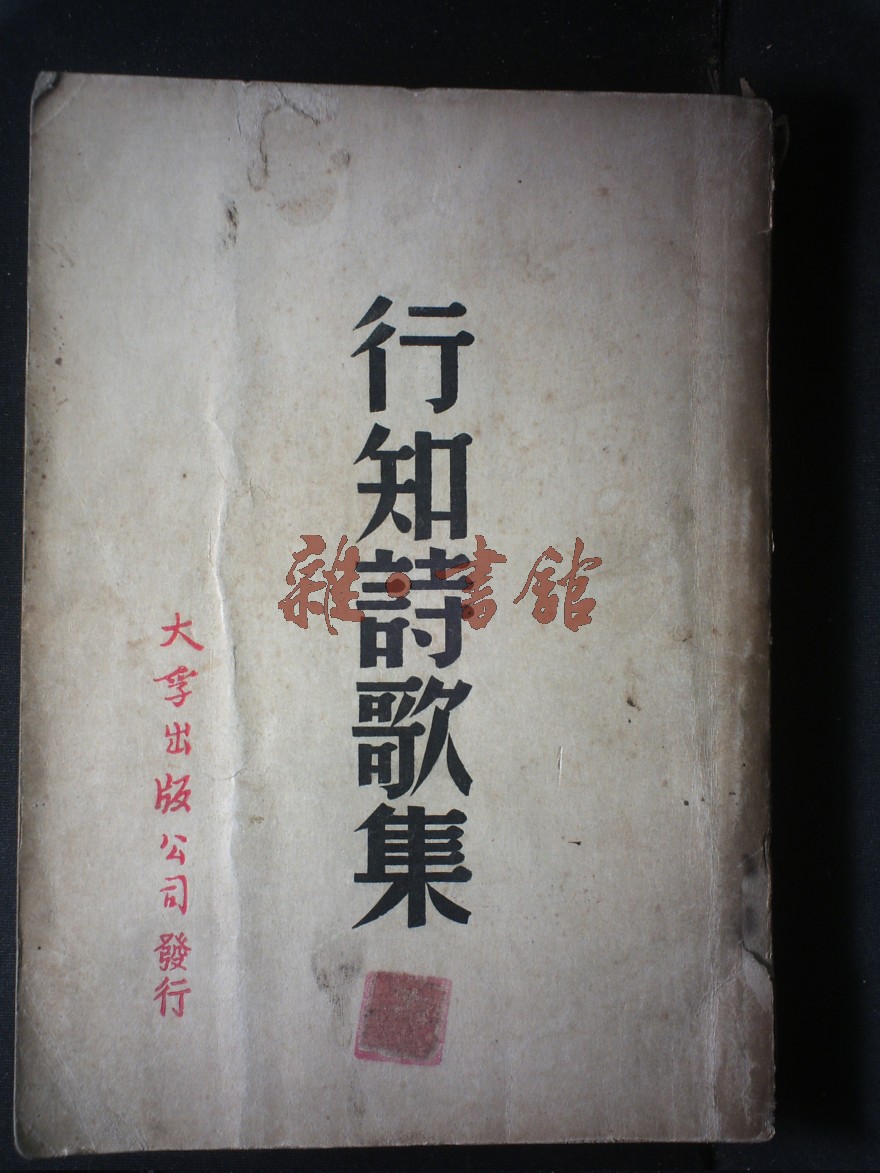 行知詩歌集
大孚出版公司發行
雜·書館